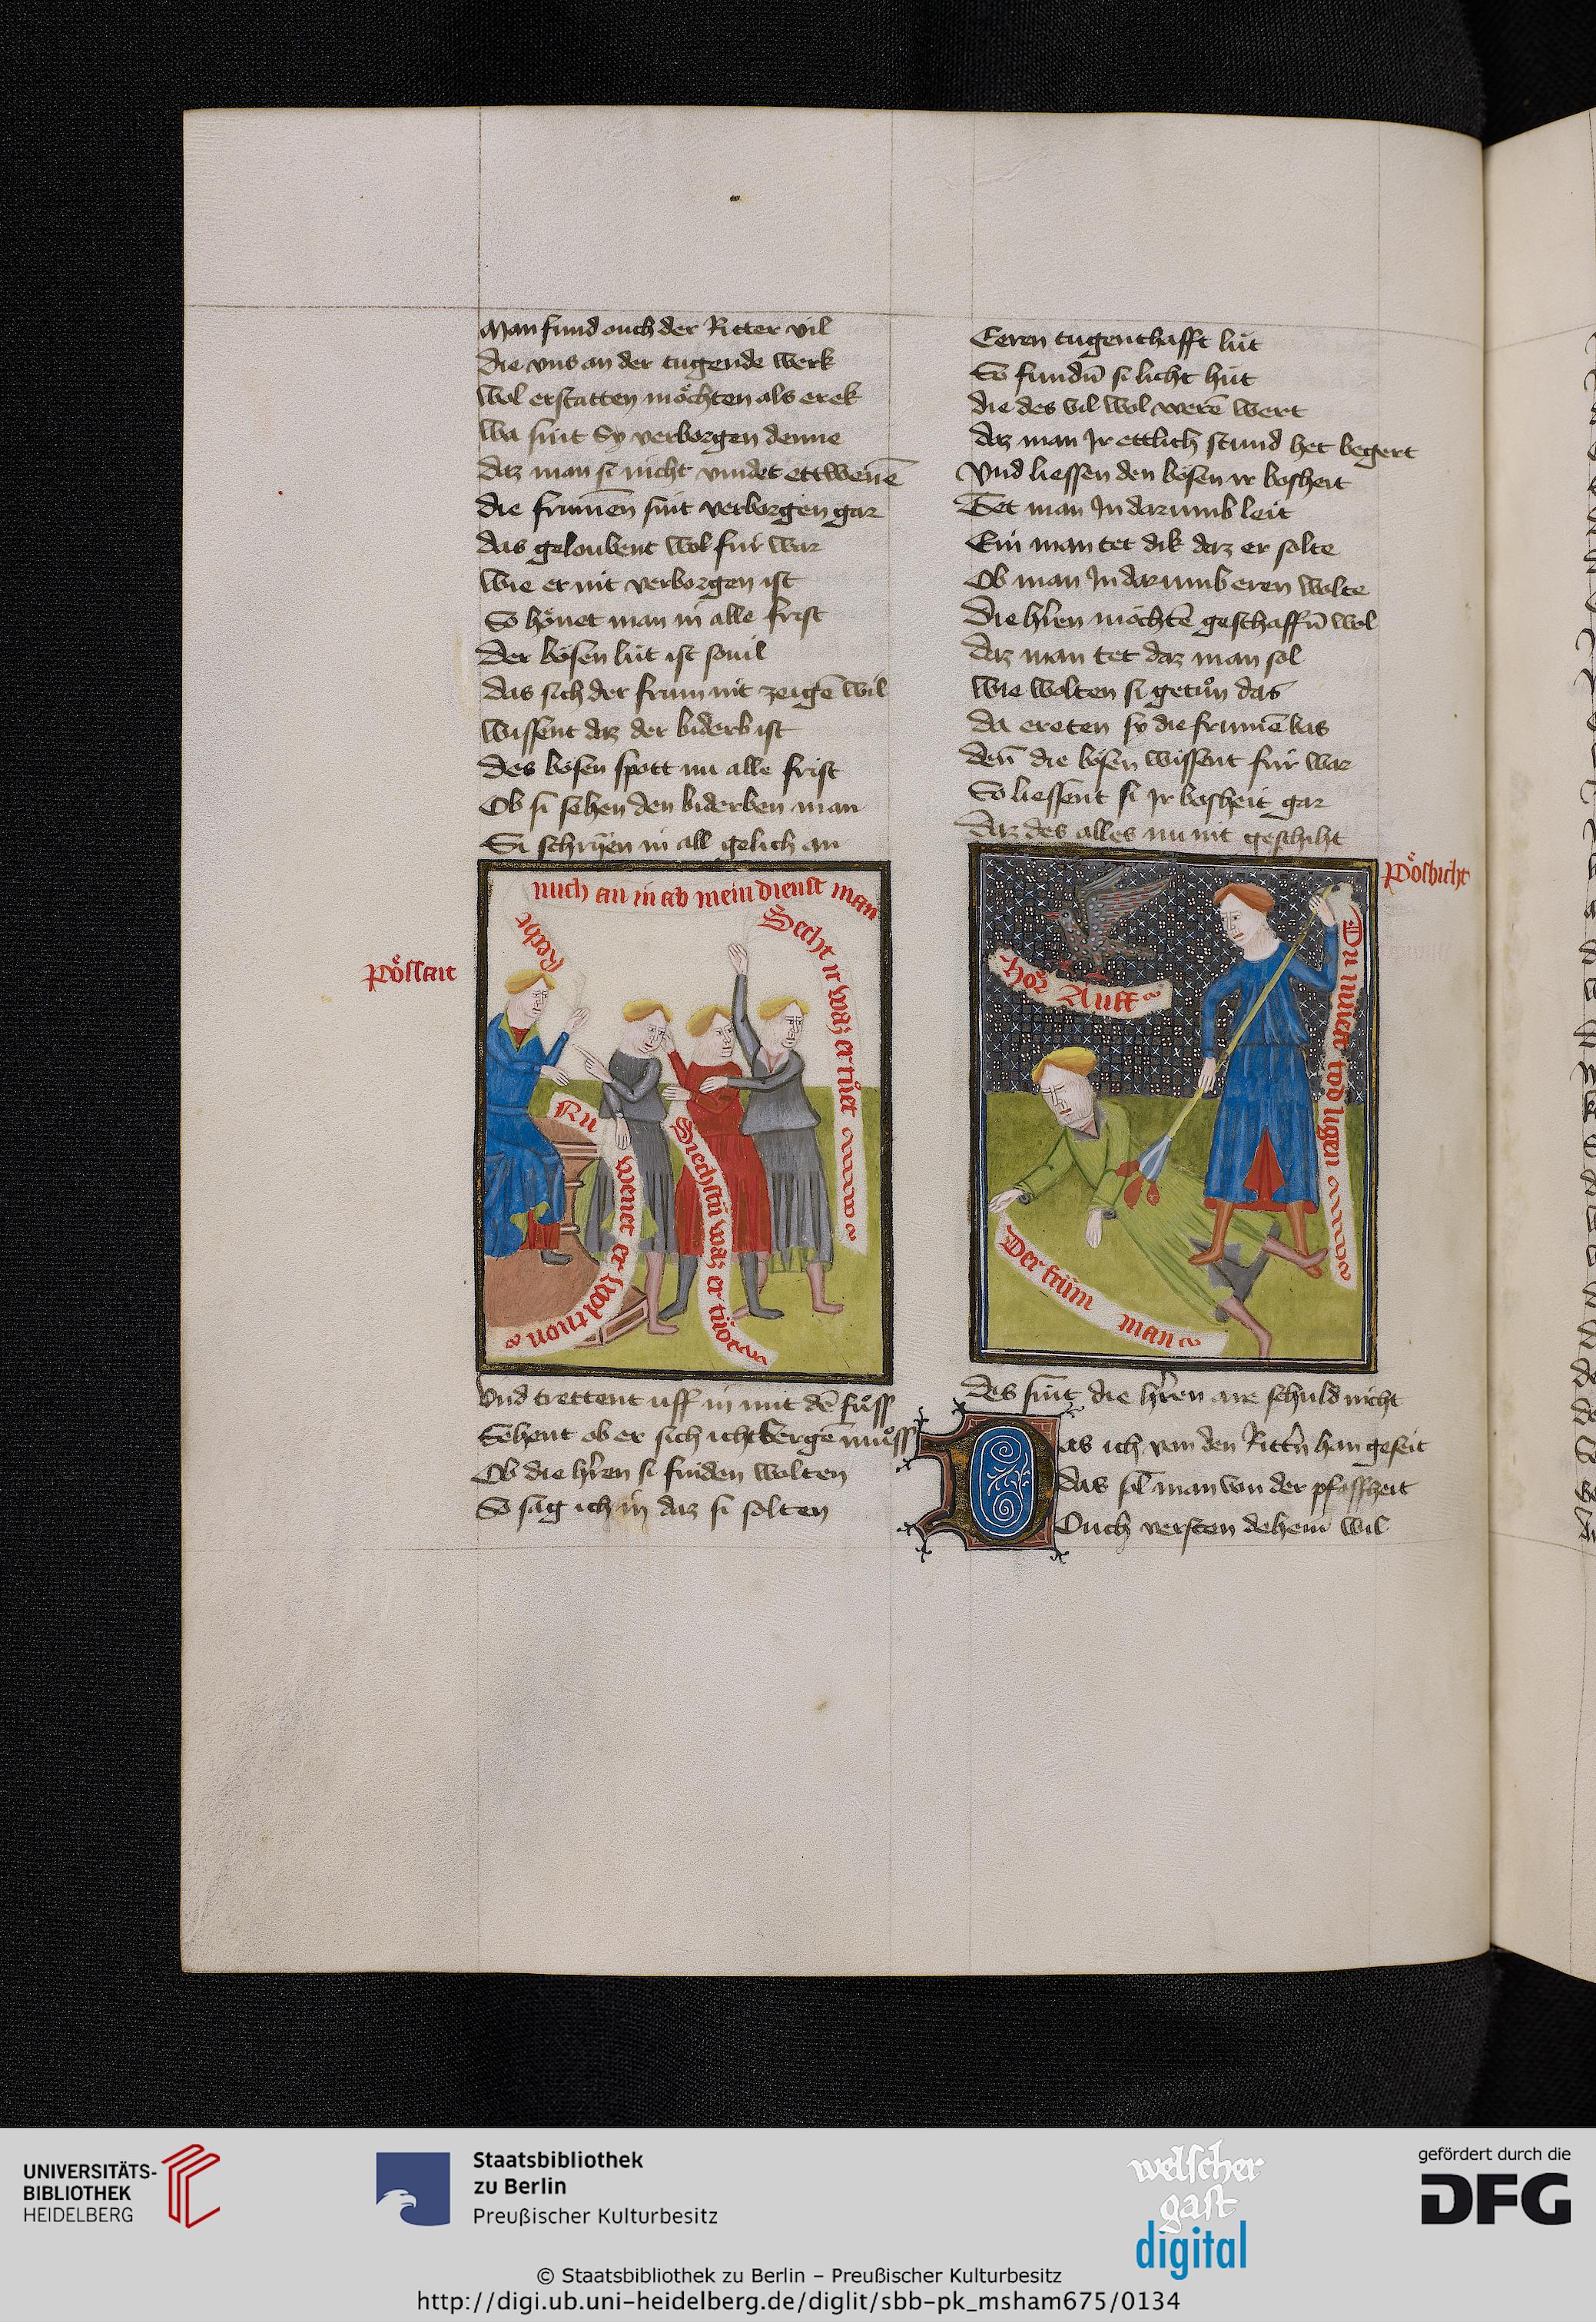 Man fund ouch der Ritter vil
die vns an der tugende werk
Wol erstatten möchten als erek
Wa sint Sy verborgen denne
daz man si nicht vindet ettwenē
die frumēn sint verborgen gar
das geloubent wol für war
Wie er nit verborgen ist
So hönet man in alle frist
Der bösen lüt ist souil
das sich der frum nit zeigē wil
Wissent daz der biderb ist
des bösen spott nu alle frist
Ob si sehen den biderben man
Si schryen in all gelich an
Pöllait
Recht
mich an in ab mein dienst man
Secht ir waz er tüet
Nu wenet er wol tuon
Siechstu waz er tüöt
Vnd trettent uff in mit dē fuͦss
Sehent ob er sich icht bergē muͦss
Ob die hr̄en si finden wolten
So sag ich in daz si solten
Eeren tugenthafft lüt
So fundn̄ si licht hüt
die des vil wol werē wert
daz man Jr ettlich stund het begert
Vnd liessen den bösen ir bosheit
Tet man Jn darumb leit
Ein man tet dik daz er solte
Ob man Jn darumb eren wolte
Die hr̄en möchtē geschaffn̄ wol
Daz man tet daz man sol
Wie wolten si getuͦn das
da ereten sy die frumē bas
den̄ die bösen wissent für war
So liessent si Jr bosheit gar
Daz des alles nu nit geschiht
Pöswicht
Hör Auff
Du muest tod ligen
Der frum man
Des sint die hr̄en ane schuld nicht
Das ich von den Rittn̄ han geseit
das sol man von der pfaffheit
Ouch versten dehein wil
UNIVERSITÄTS-
BIBLIOTHEK
HEIDELBERG
Staatsbibliothek
zu Berlin
Preußischer Kulturbesitz
welscher
gast
digital
gefördert durch die
DFG
© Staatsbibliothek zu Berlin – Preußischer Kulturbesitz
http://digi.ub.uni-heidelberg.de/diglit/sbb-pk_msham675/0134